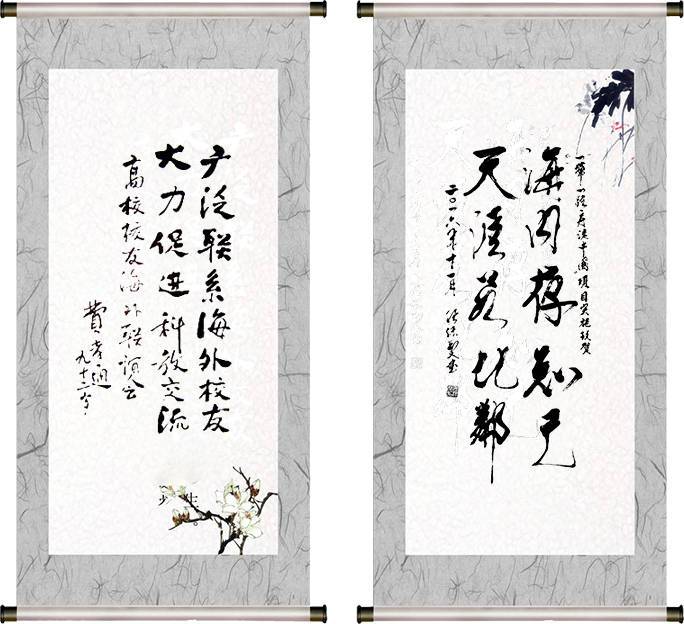 广泛联系海外校友
大力促进科教交流
高校校友海外联谊会
费孝通
九十二
一带一路
项目实施致贺
海内存知己
天涯若比鄰
二〇一六年十一月